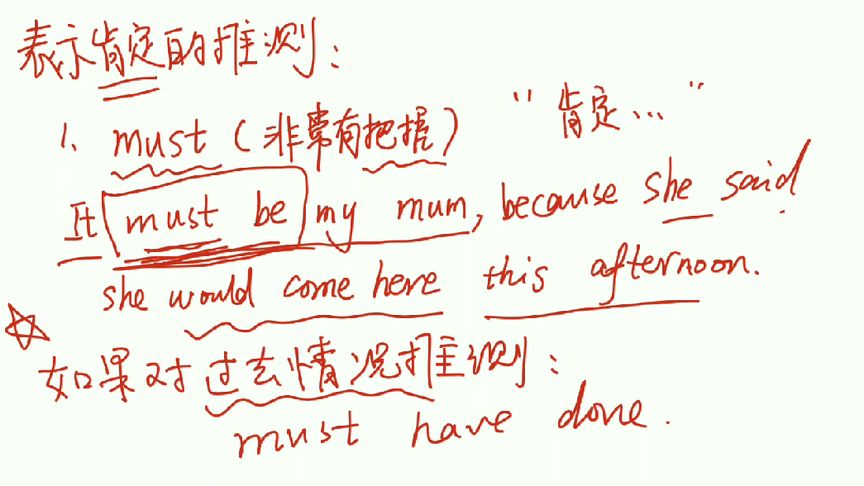 表示肯定的推测:
1. must (非常有把握) "肯定..."
It must be my mum, because she said
she would come here this afternoon.
如果对过去情况推测:
must have done.